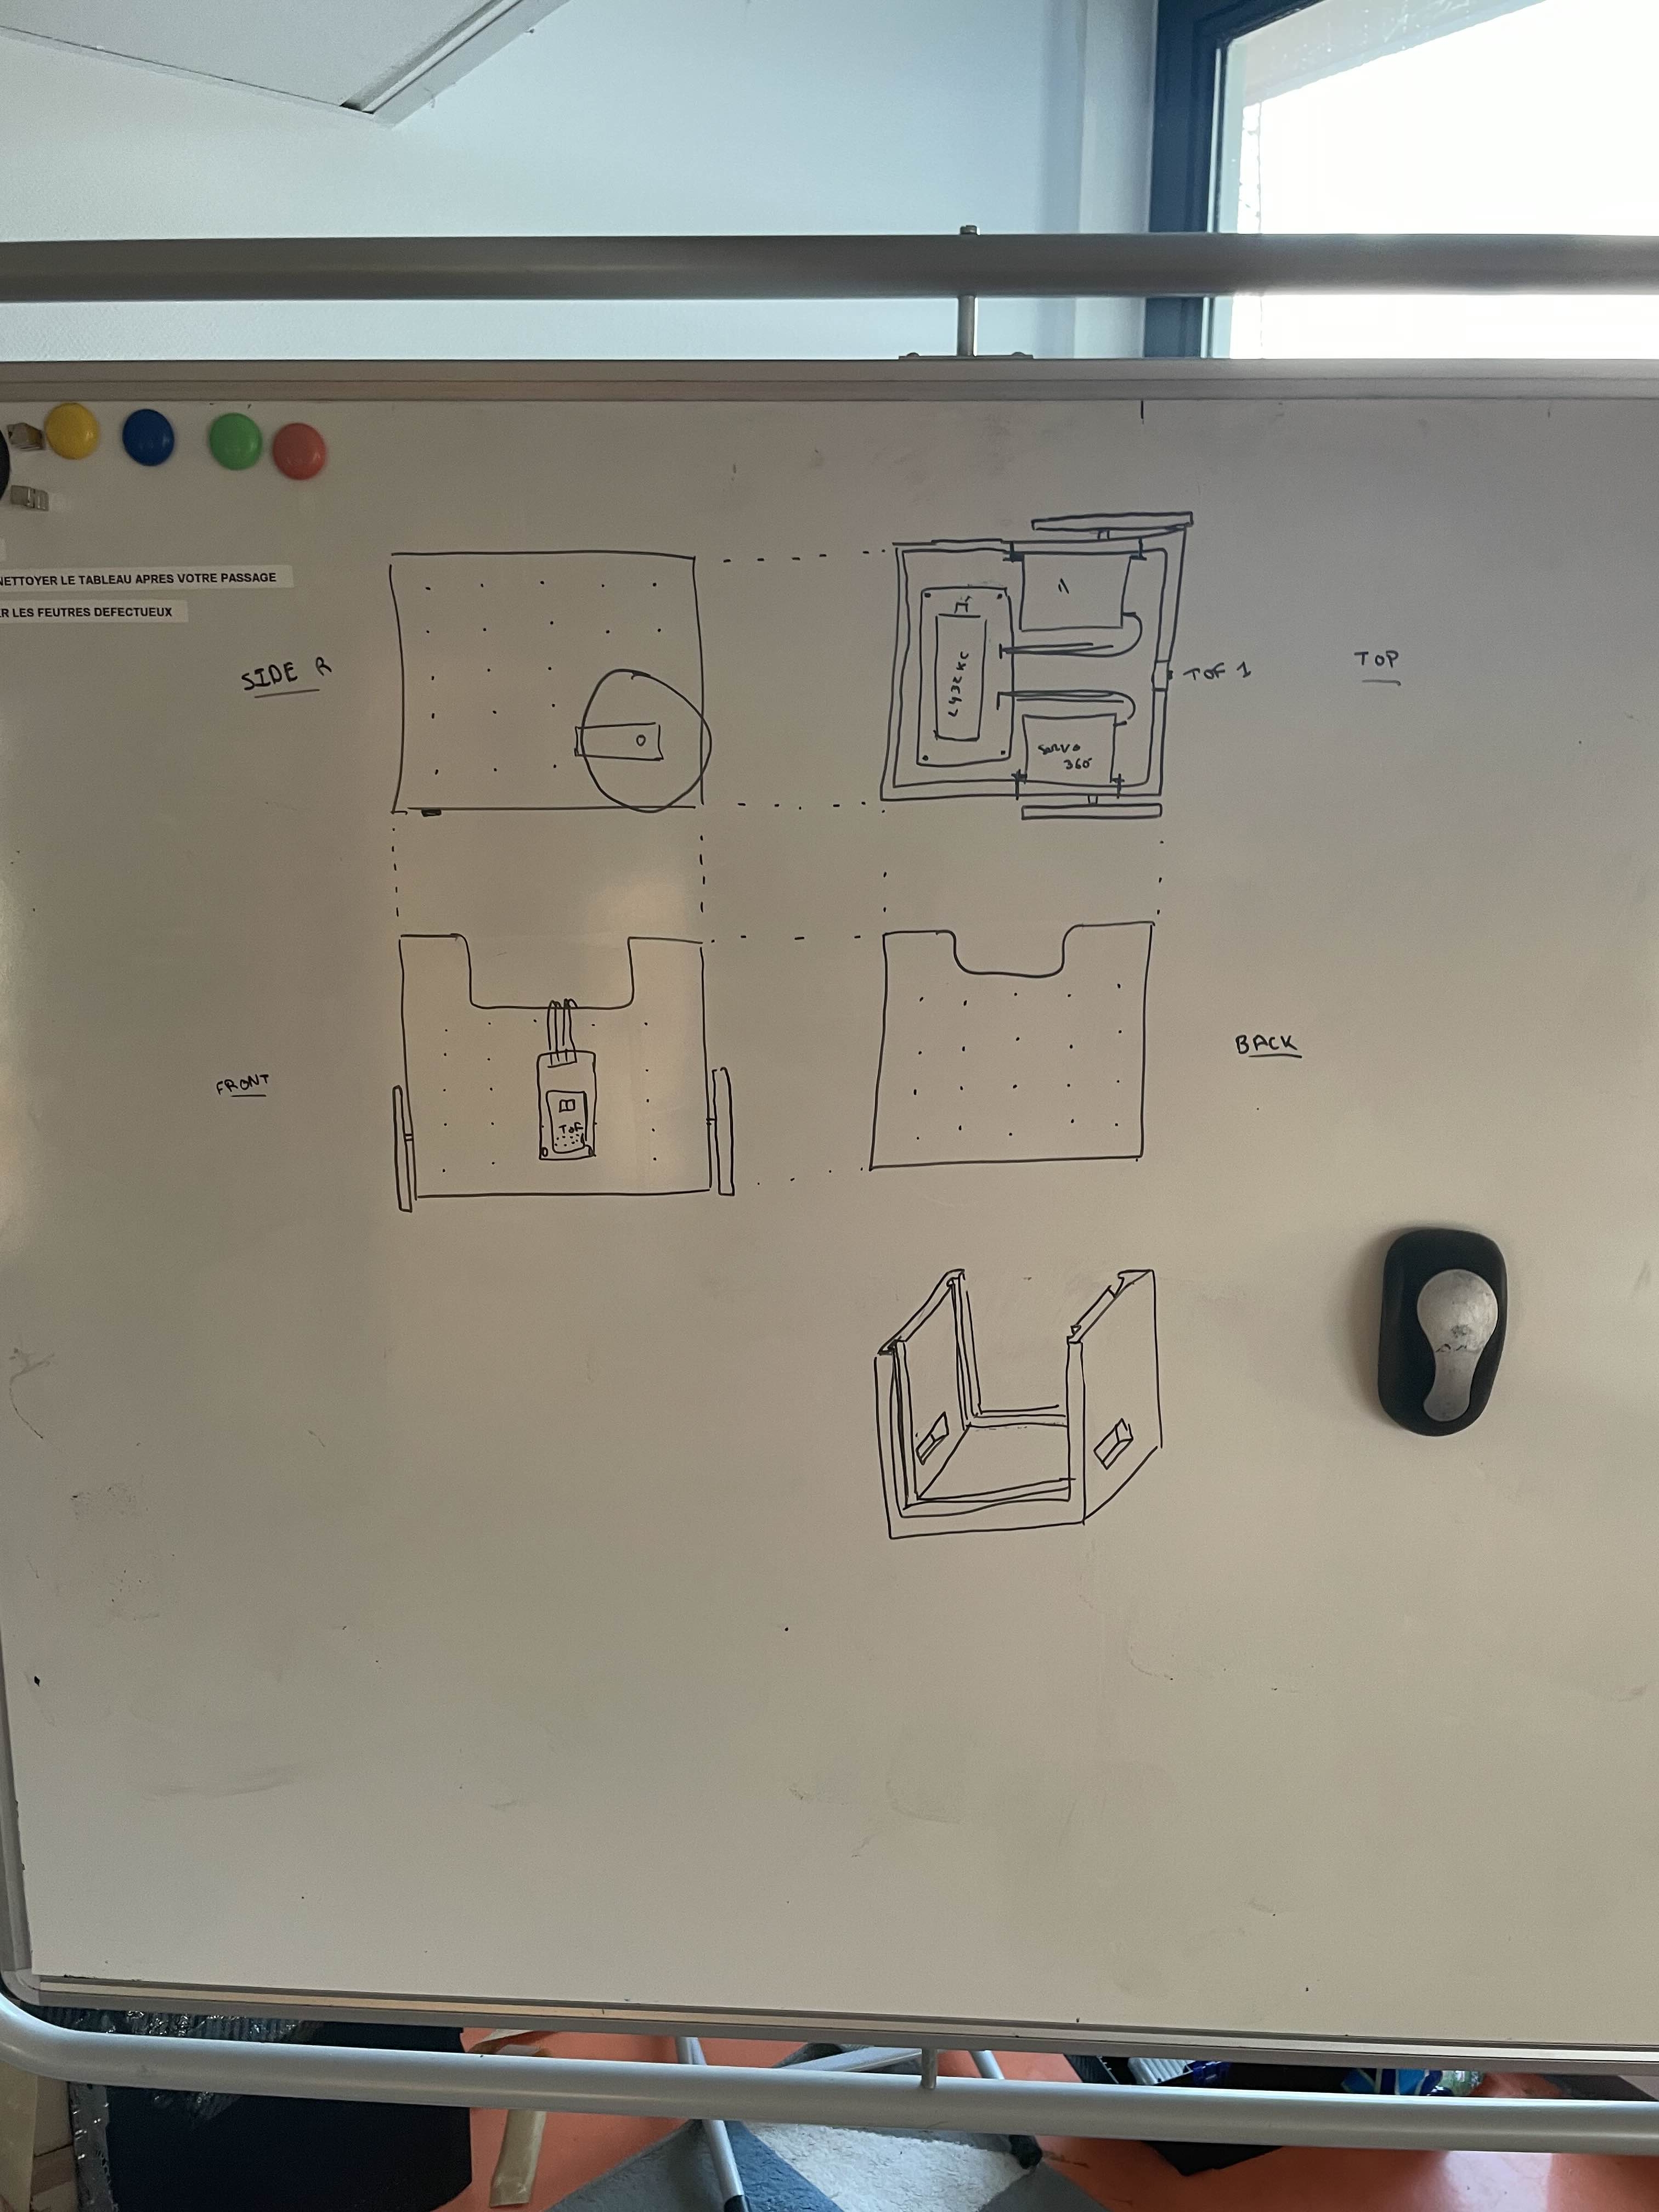 NETTOYER LE TABLEAU APRES VOTRE PASSAGE
ER LES FEUTRES DEFECTUEUX
SIDE R
L432KC
TOF 1
TOP
SERVO
360
FRONT
TOF
BACK